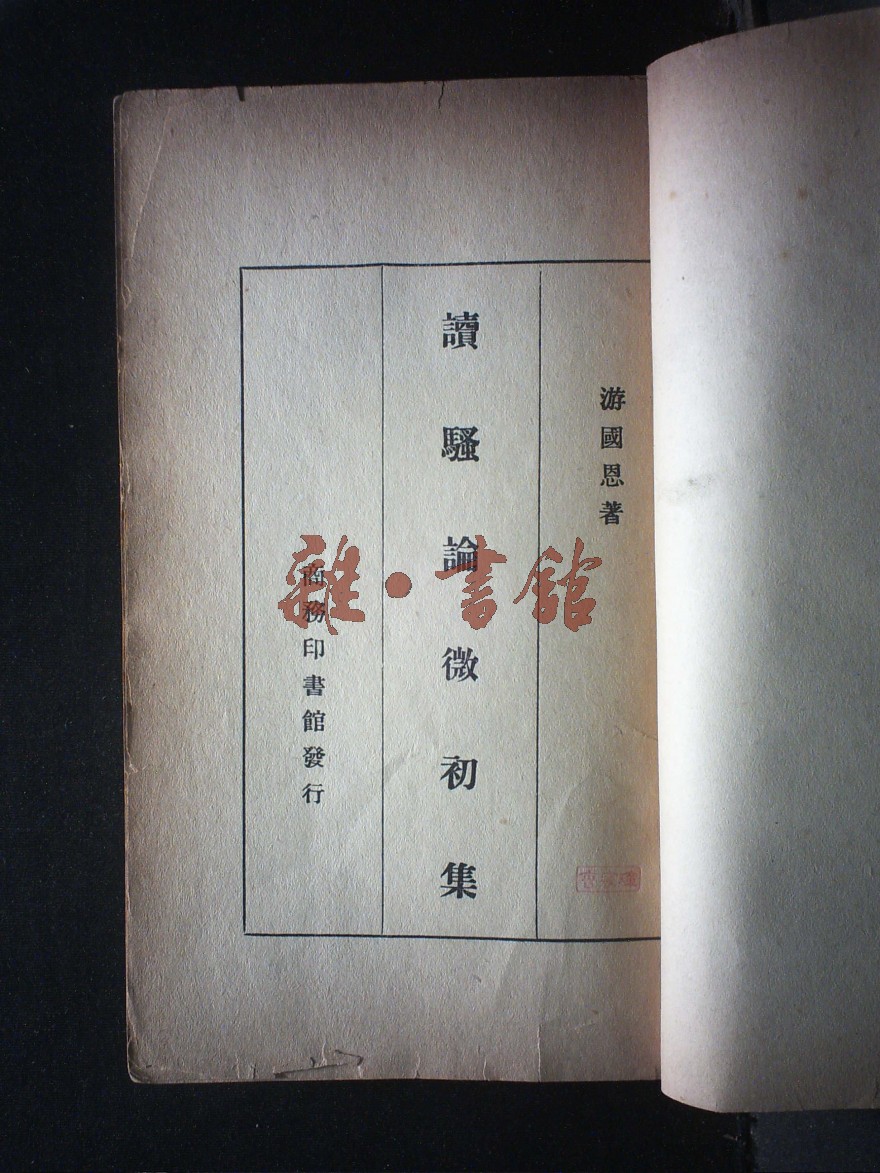 游國恩著
讀騷論微初集
商務印書館發行
雜·書館